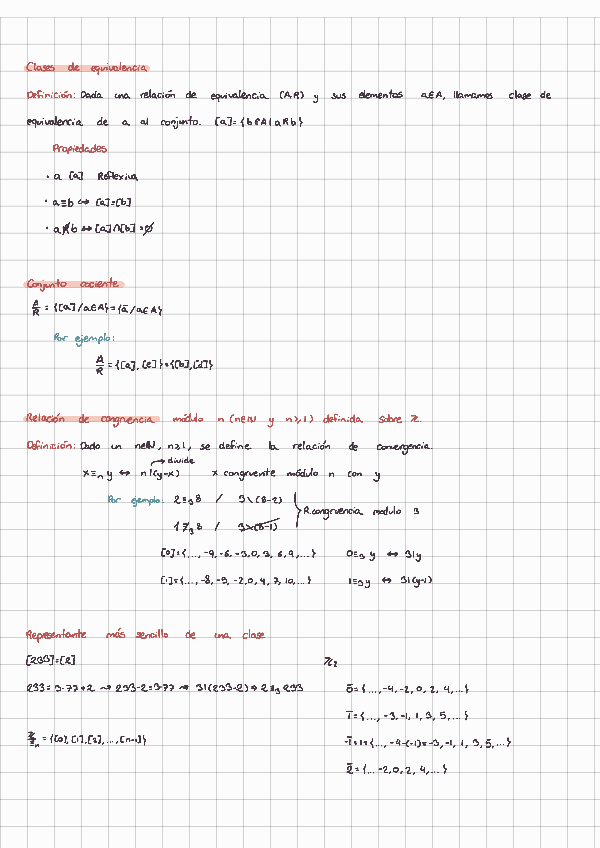 Clases de equivalencia
Definición: Dada una relación de equivalencia (A,R) y sus elementos a∈A, llamamos clase de
equivalencia de a al conjunto. [a]={b∈A/aRb}
Propiedades
· a [a] Reflexiva
· a≡b ↔ [a]=[b]
· aR̸b ↔ [a]∩[b]=∅
Conjunto cociente
A/R = {[a]/a∈A}={ā/a∈A}
Por ejemplo:
A/R = {[a],[c]}={[b],[d]}
Relación de congruencia módulo n (n∈ℕ y n≥1) definida sobre ℤ
Definición: Dado un n∈ℕ, n≥1, se define la relación de convergencia.
→ divide
x≡ₙy ↔ n|(y-x) x congruente módulo n con y
Por ejemplo: 2≡₃8 / 3\(8-2)
1≢₃8 / 3\(8-1)
R.congruencia modulo 3
[0]={..., -9, -6, -3, 0, 3, 6, 9, ...} 0≡₃y ↔ 3|y
[1]={..., -8, -5, -2, 0, 4, 7, 10, ...} 1≡₃y ↔ 3|(y-1)
Representante más sencillo de una clase
[233]=[2] ℤ₂
233=3·77+2 ⇝ 233-2=3·77 ⇝ 3|(233-2) → 2≡₃233 0̄={..., -4, -2, 0, 2, 4, ...}
1̄={..., -3, -1, 1, 3, 5, ...}
ℤ/≡ₙ = {[0],[1],[2],...,[n-1]} -1̄=1={..., -4-(-1)=-3, -1, 1, 3, 5, ...}
2̄={... -2, 0, 2, 4, ...}